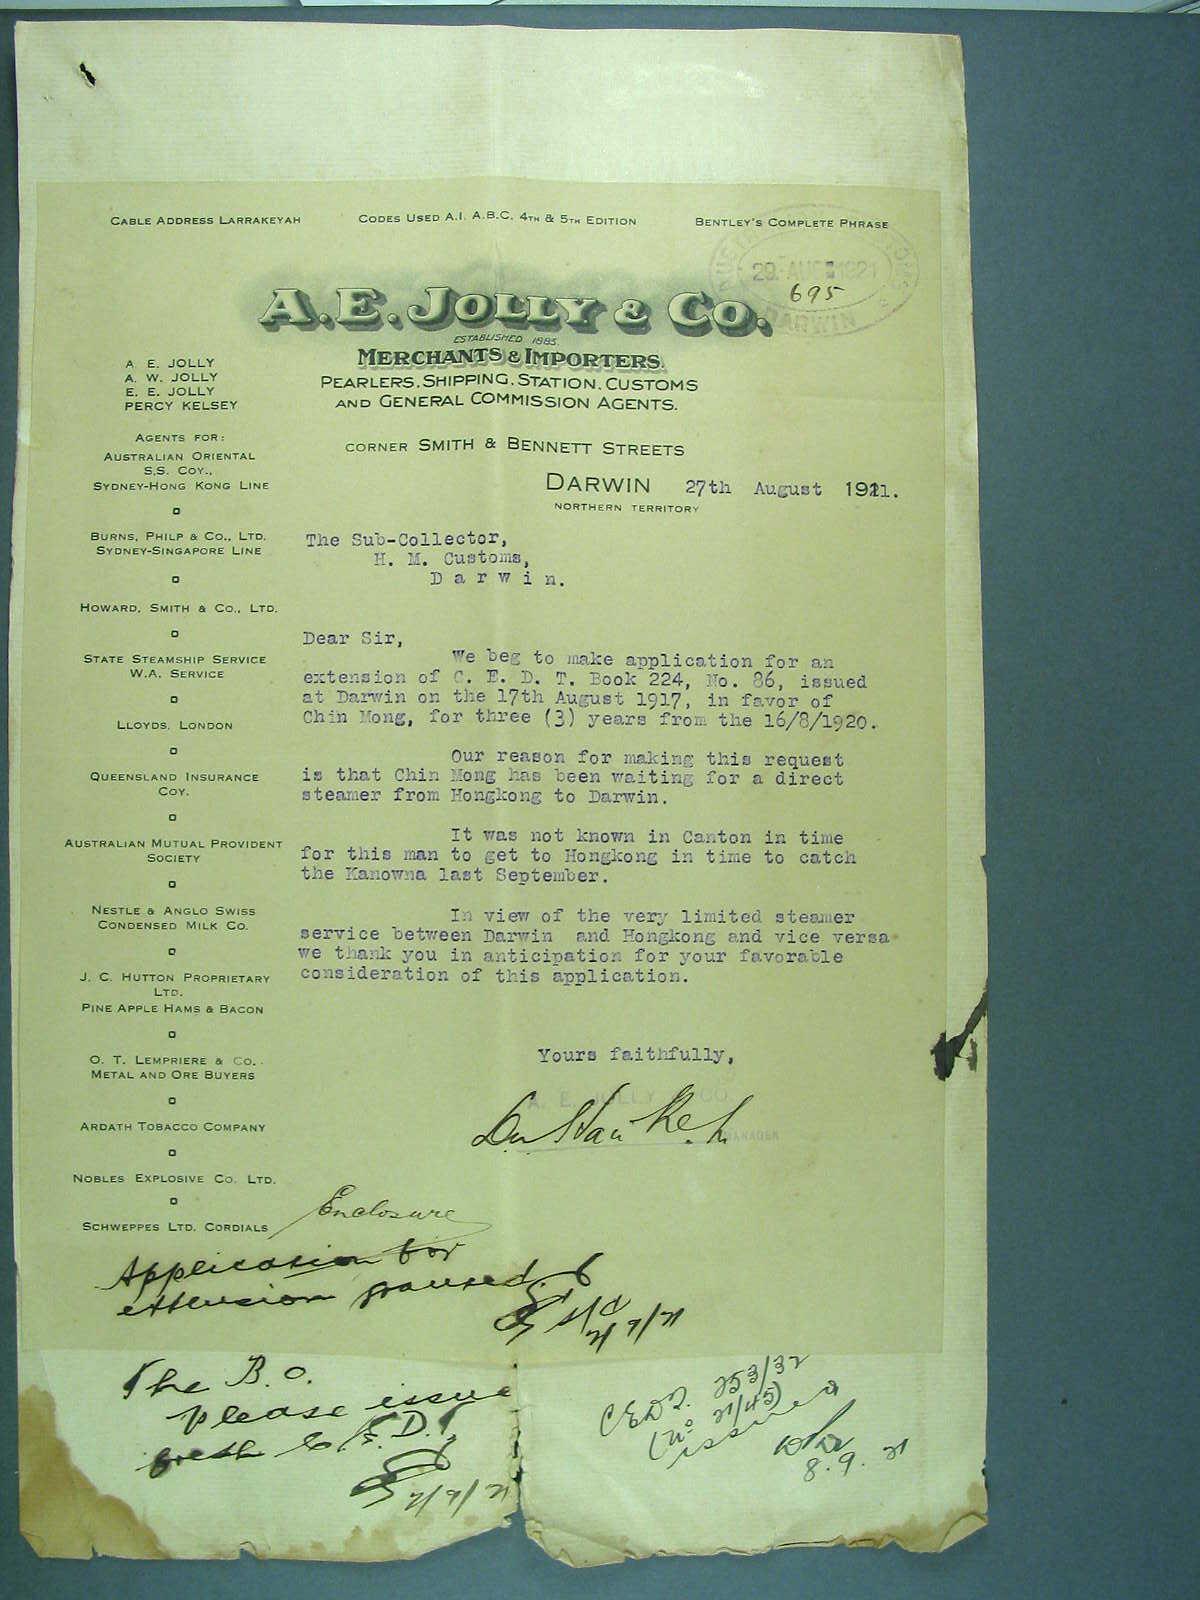 CABLE ADDRESS LARRAKEYAH
CODES USED A.I. A.B.C. 4TH & 5TH EDITION
BENTLEY'S COMPLETE PHRASE
29 AUG 1921
695
DARWIN
A. E. JOLLY & CO.
ESTABLISHED 1885.
MERCHANTS & IMPORTERS.
PEARLERS, SHIPPING, STATION, CUSTOMS
AND GENERAL COMMISSION AGENTS.
CORNER SMITH & BENNETT STREETS
DARWIN 27th August 1921.
NORTHERN TERRITORY
A. E. JOLLY
A. W. JOLLY
E. E. JOLLY
PERCY KELSEY
AGENTS FOR:
AUSTRALIAN ORIENTAL
S.S. COY.,
SYDNEY-HONG KONG LINE
BURNS, PHILP & CO., LTD.
SYDNEY-SINGAPORE LINE
HOWARD, SMITH & CO., LTD.
STATE STEAMSHIP SERVICE
W.A. SERVICE
LLOYDS, LONDON
QUEENSLAND INSURANCE
COY.
AUSTRALIAN MUTUAL PROVIDENT
SOCIETY
NESTLE & ANGLO SWISS
CONDENSED MILK CO.
J. C. HUTTON PROPRIETARY
LTD.
PINE APPLE HAMS & BACON
O. T. LEMPRIERE & CO.
METAL AND ORE BUYERS
ARDATH TOBACCO COMPANY
NOBLES EXPLOSIVE CO. LTD.
SCHWEPPES LTD. CORDIALS
The Sub-Collector,
H. M. Customs,
D a r w i n.
Dear Sir,
We beg to make application for an
extension of C. E. D. T. Book 224, No. 86, issued
at Darwin on the 17th August 1917, in favor of
Chin Mong, for three (3) years from the 16/8/1920.
Our reason for making this request
is that Chin Mong has been waiting for a direct
steamer from Hongkong to Darwin.
It was not known in Canton in time
for this man to get to Hongkong in time to catch
the Kanowna last September.
In view of the very limited steamer
service between Darwin and Hongkong and vice versa
we thank you in anticipation for your favorable
consideration of this application.
Yours faithfully,
A. E. JOLLY & CO.
MANAGER
Enclosure
Application for
extension
The B.O.
please issue
fresh C.E.D.T.
CEDT. 253/32
(No 21/45)
issued
8.9.21